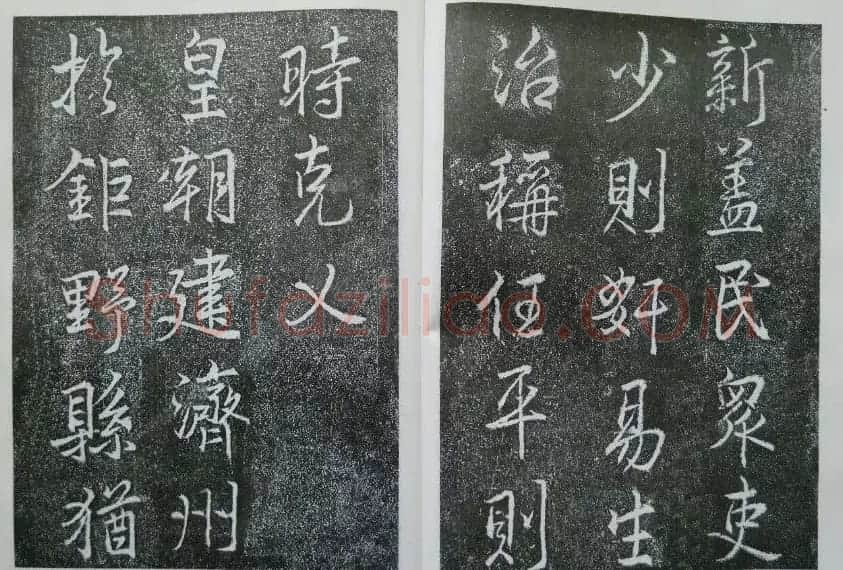 新盖民眾吏
少則奸易生
治稱任平則
時克乂
皇朝建濟州
於鉅野縣猶
shufaziliao.com